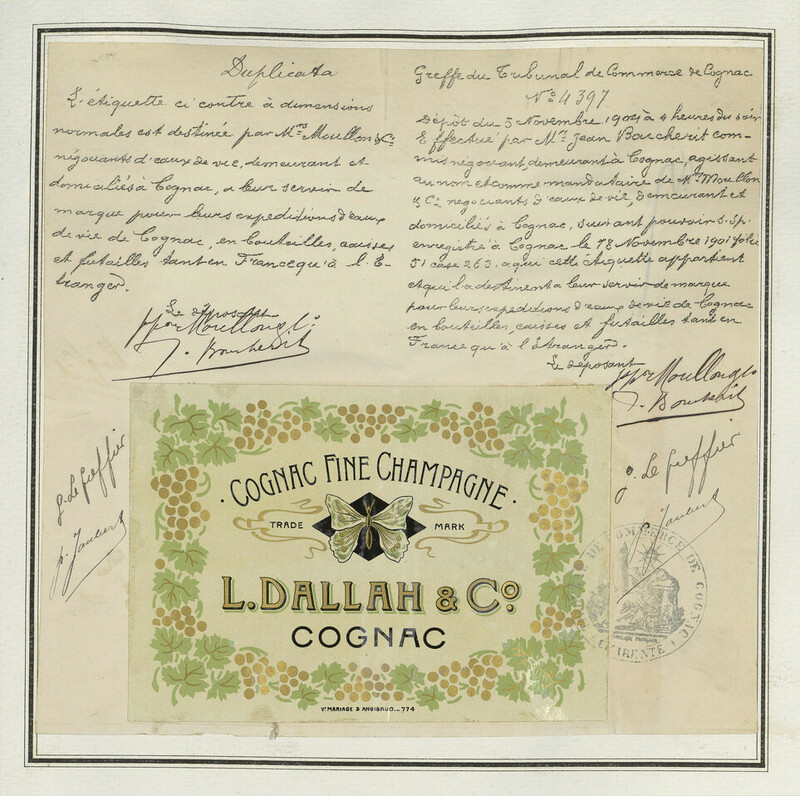 Duplicata
L'étiquette ci contre à dimensions
normales est destinée par Mrs Moullon & Co
négociants d'eaux de vie, demeurant et
domiciliés à Cognac, à leur servir de
marque pour leurs expéditions d'eaux
de vie de Cognac, en bouteilles, caisses
et futailles tant en France qu'à l'É-
tranger.
Le déposant
ppon Moullon & Co
Greffe du Tribunal de Commerce de Cognac
No 4397
Dépôt du 5 Novembre 1904 à 4 heures du soir
Effectué par Mr Jean Barcherit com-
mis négociant, demeurant à Cognac, agissant
au nom et comme mandataire de Mrs Moullon
& Co négociants d'eaux de vie, demeurant et
domiciliés à Cognac, suivant pouvoir s. sp.
enregistré à Cognac le 18 Novembre 1901 folio
51 case 265. à qui cette étiquette appartient
et qui la destinent à leur servir de marque
pour leurs expéditions d'eaux de vie de Cognac
en bouteilles, caisses et futailles tant en
France qu'à l'Étranger.
Le déposant
ppon Moullon & Co
p. Le Greffier
p. Le Greffier
· COGNAC FINE CHAMPAGNE ·
TRADE MARK
L. DALLAH & Co
COGNAC
Vve MARIAGE & ANGIBAUD... 774
DE COMMERCE DE COGNAC
CHARENTE